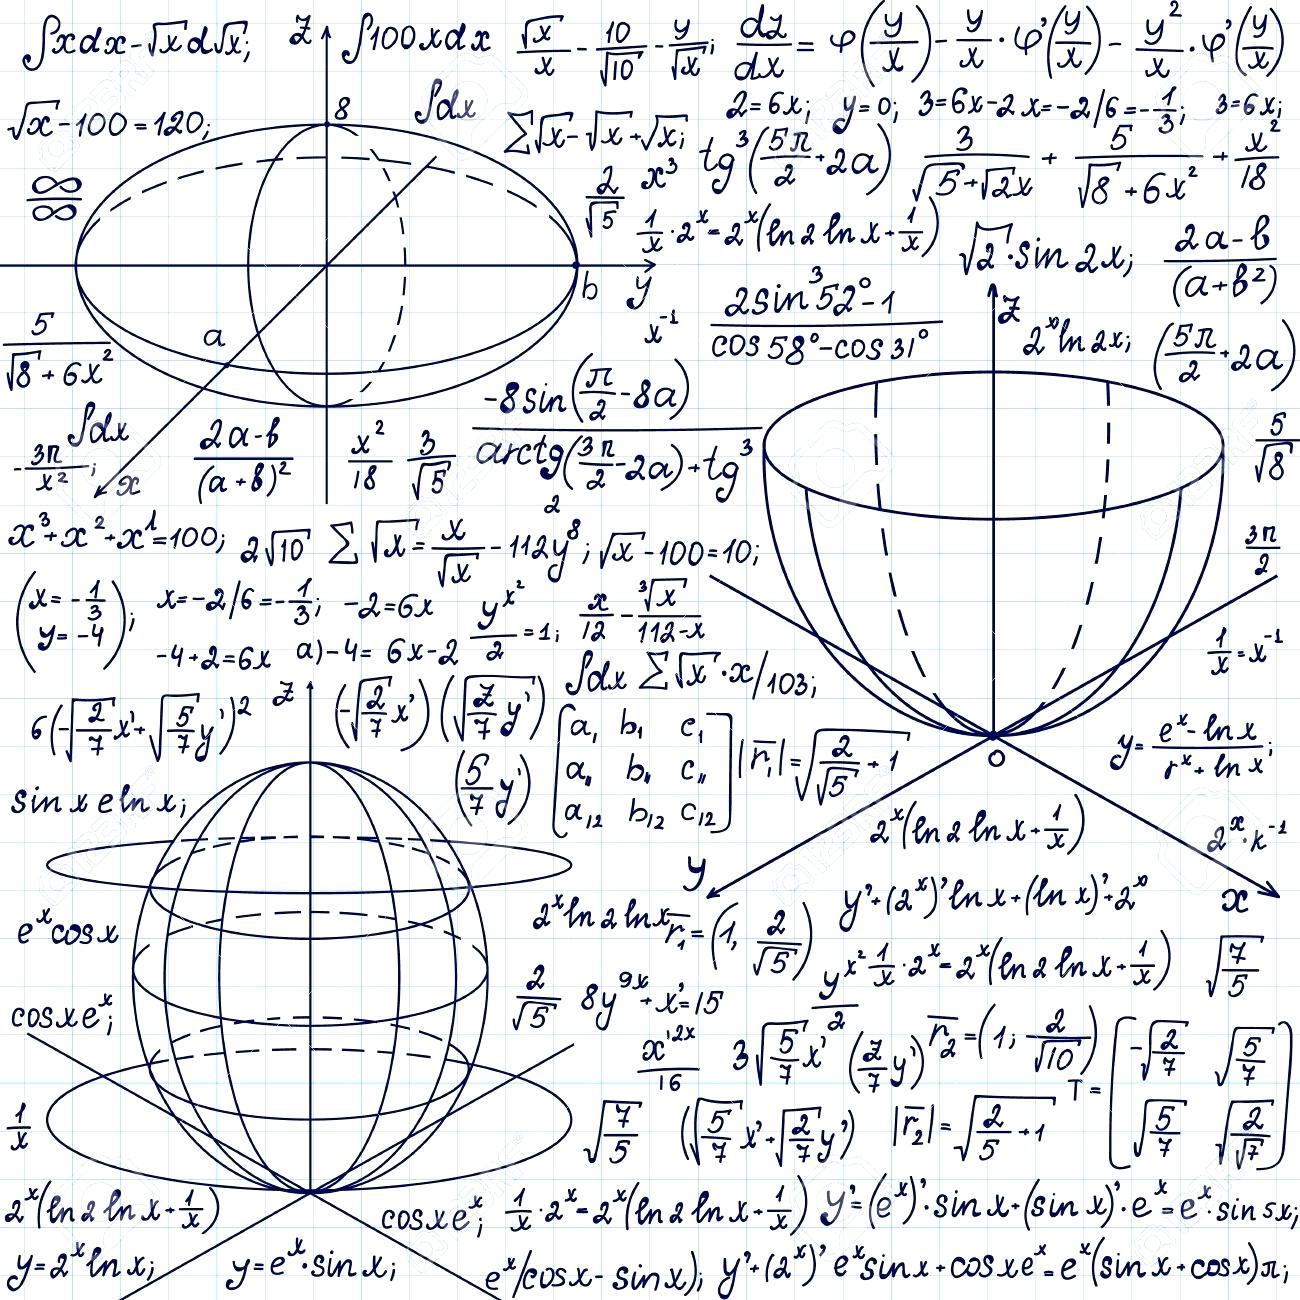 ∫xdx-√x d√x;
z
∫100xdx
√x/x - 10/√10 - y/√x;
dz/dx = φ(y/x) - y/x · φ'(y/x) - y²/x · φ'(y/x)
√x-100=120;
8
∫dx
∑√x-√x+√x;
2=6x; y=0; 3=6x-2 x=-2/6=-1/3; 3=6x;
∞/∞
2/√5
x³
tg³(5π/2+2a)
3/(√5+√2x) + 5/(√8+6x²) + x²/18
1/x·2ˣ=2ˣ(ln2 lnx+1/x)
√2·sin2x;
(2a-b)/(a+b²)
b
y
x⁻¹
(2sin³52°-1)/(cos58°-cos31°)
z
2ˣln2x;
(5π/2+2a)
5/(√8+6x²)
a
-8sin(π/2-8a)
arctg(3π/2-2a)+tg³
2
5/√8
∫dx
-3π/x²;
x
(2a-b)/(a+b)²
x²/18
3/√5
x³+x²+x¹=100;
2√10
∑√x=x/√x-112y⁸;
√x-100=10;
3π/2
(x=-1/3
y=-4);
x=-2/6=-1/3;
-2=6x
yˣ²/2=1;
x/12-³√x/112-x
-4+2=6x
a)-4=6x-2
1/x=x⁻¹
∫dx ∑√x·x/103;
6(-√2/7x'+√5/7y')²
z
(-√2/7x')
(√z/7y')
a₁ b₁ c₁
a₁₁ b₁₁ c₁₁
a₁₂ b₁₂ c₁₂
|r₁|=√(2/√5+1)
O
y=(eˣ-lnx)/(rˣ+lnx);
(5/7y')
sin x e ln x;
2ˣ(ln2 lnx+1/x)
2ˣ·k⁻¹
y
y'+(2ˣ)'lnx+(lnx)'+2ˣ
x
eˣcosx
2ˣln2 lnx
r₁=(1, 2/√5)
yˣ²/2
1/x·2ˣ=2ˣ(ln2 lnx+1/x)
√7/5
2/√5
8y⁹ˣ+x'=15
cosxeˣ;
x'²ˣ/16
3√5/7x'
(z/7y')
r₂=(1; 2/√10)
T=
-√2/7 √5/7
√5/7 √2/√7
1/x
√7/5
(√5/7x'+√2/7y')
|r₂|=√(2/5+1)
2ˣ(ln2 lnx+1/x)
cosxeˣ;
1/x·2ˣ=2ˣ(ln2 lnx+1/x)
y'=(eˣ)'·sinx+(sinx)'·eˣ=eˣ·sin5x;
y=2ˣlnx;
y=eˣ·sinx;
eˣ/cosx-sinx);
y'+(2ˣ)'eˣsinx+cosxeˣ=eˣ(sinx+cosx)π;